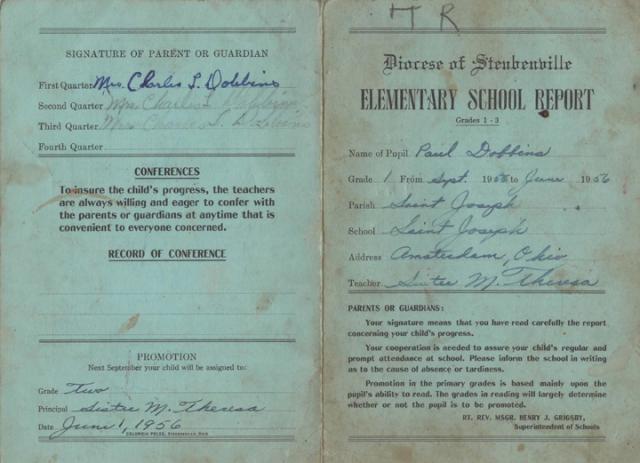 SIGNATURE OF PARENT OR GUARDIAN
First Quarter Mrs. Charles L. Dobbins
Second Quarter Mrs. Charles L. Dobbins
Third Quarter Mrs. Charles L. Dobbins
Fourth Quarter
CONFERENCES
To insure the child's progress, the teachers
are always willing and eager to confer with
the parents or guardians at anytime that is
convenient to everyone concerned.
RECORD OF CONFERENCE
PROMOTION
Next September your child will be assigned to:
Grade Two
Principal Sister M. Theresa
Date June 1, 1956
COLUMBIA PRESS, Steubenville, Ohio
HR
Diocese of Steubenville
ELEMENTARY SCHOOL REPORT
Grades 1 - 3
Name of Pupil Paul Dobbins
Grade 1 From Sept. 1955 to June 1956
Parish Saint Joseph
School Saint Joseph
Address Amsterdam, Ohio
Teacher Sister M. Theresa
PARENTS OR GUARDIANS:
Your signature means that you have read carefully the report
concerning your child's progress.
Your cooperation is needed to assure your child's regular and
prompt attendance at school. Please inform the school in writing
as to the cause of absence or tardiness.
Promotion in the primary grades is based mainly upon the
pupil's ability to read. The grades in reading will largely determine
whether or not the pupil is to be promoted.
RT. REV. MSGR. HENRY J. GRIGSBY,
Superintendent of Schools